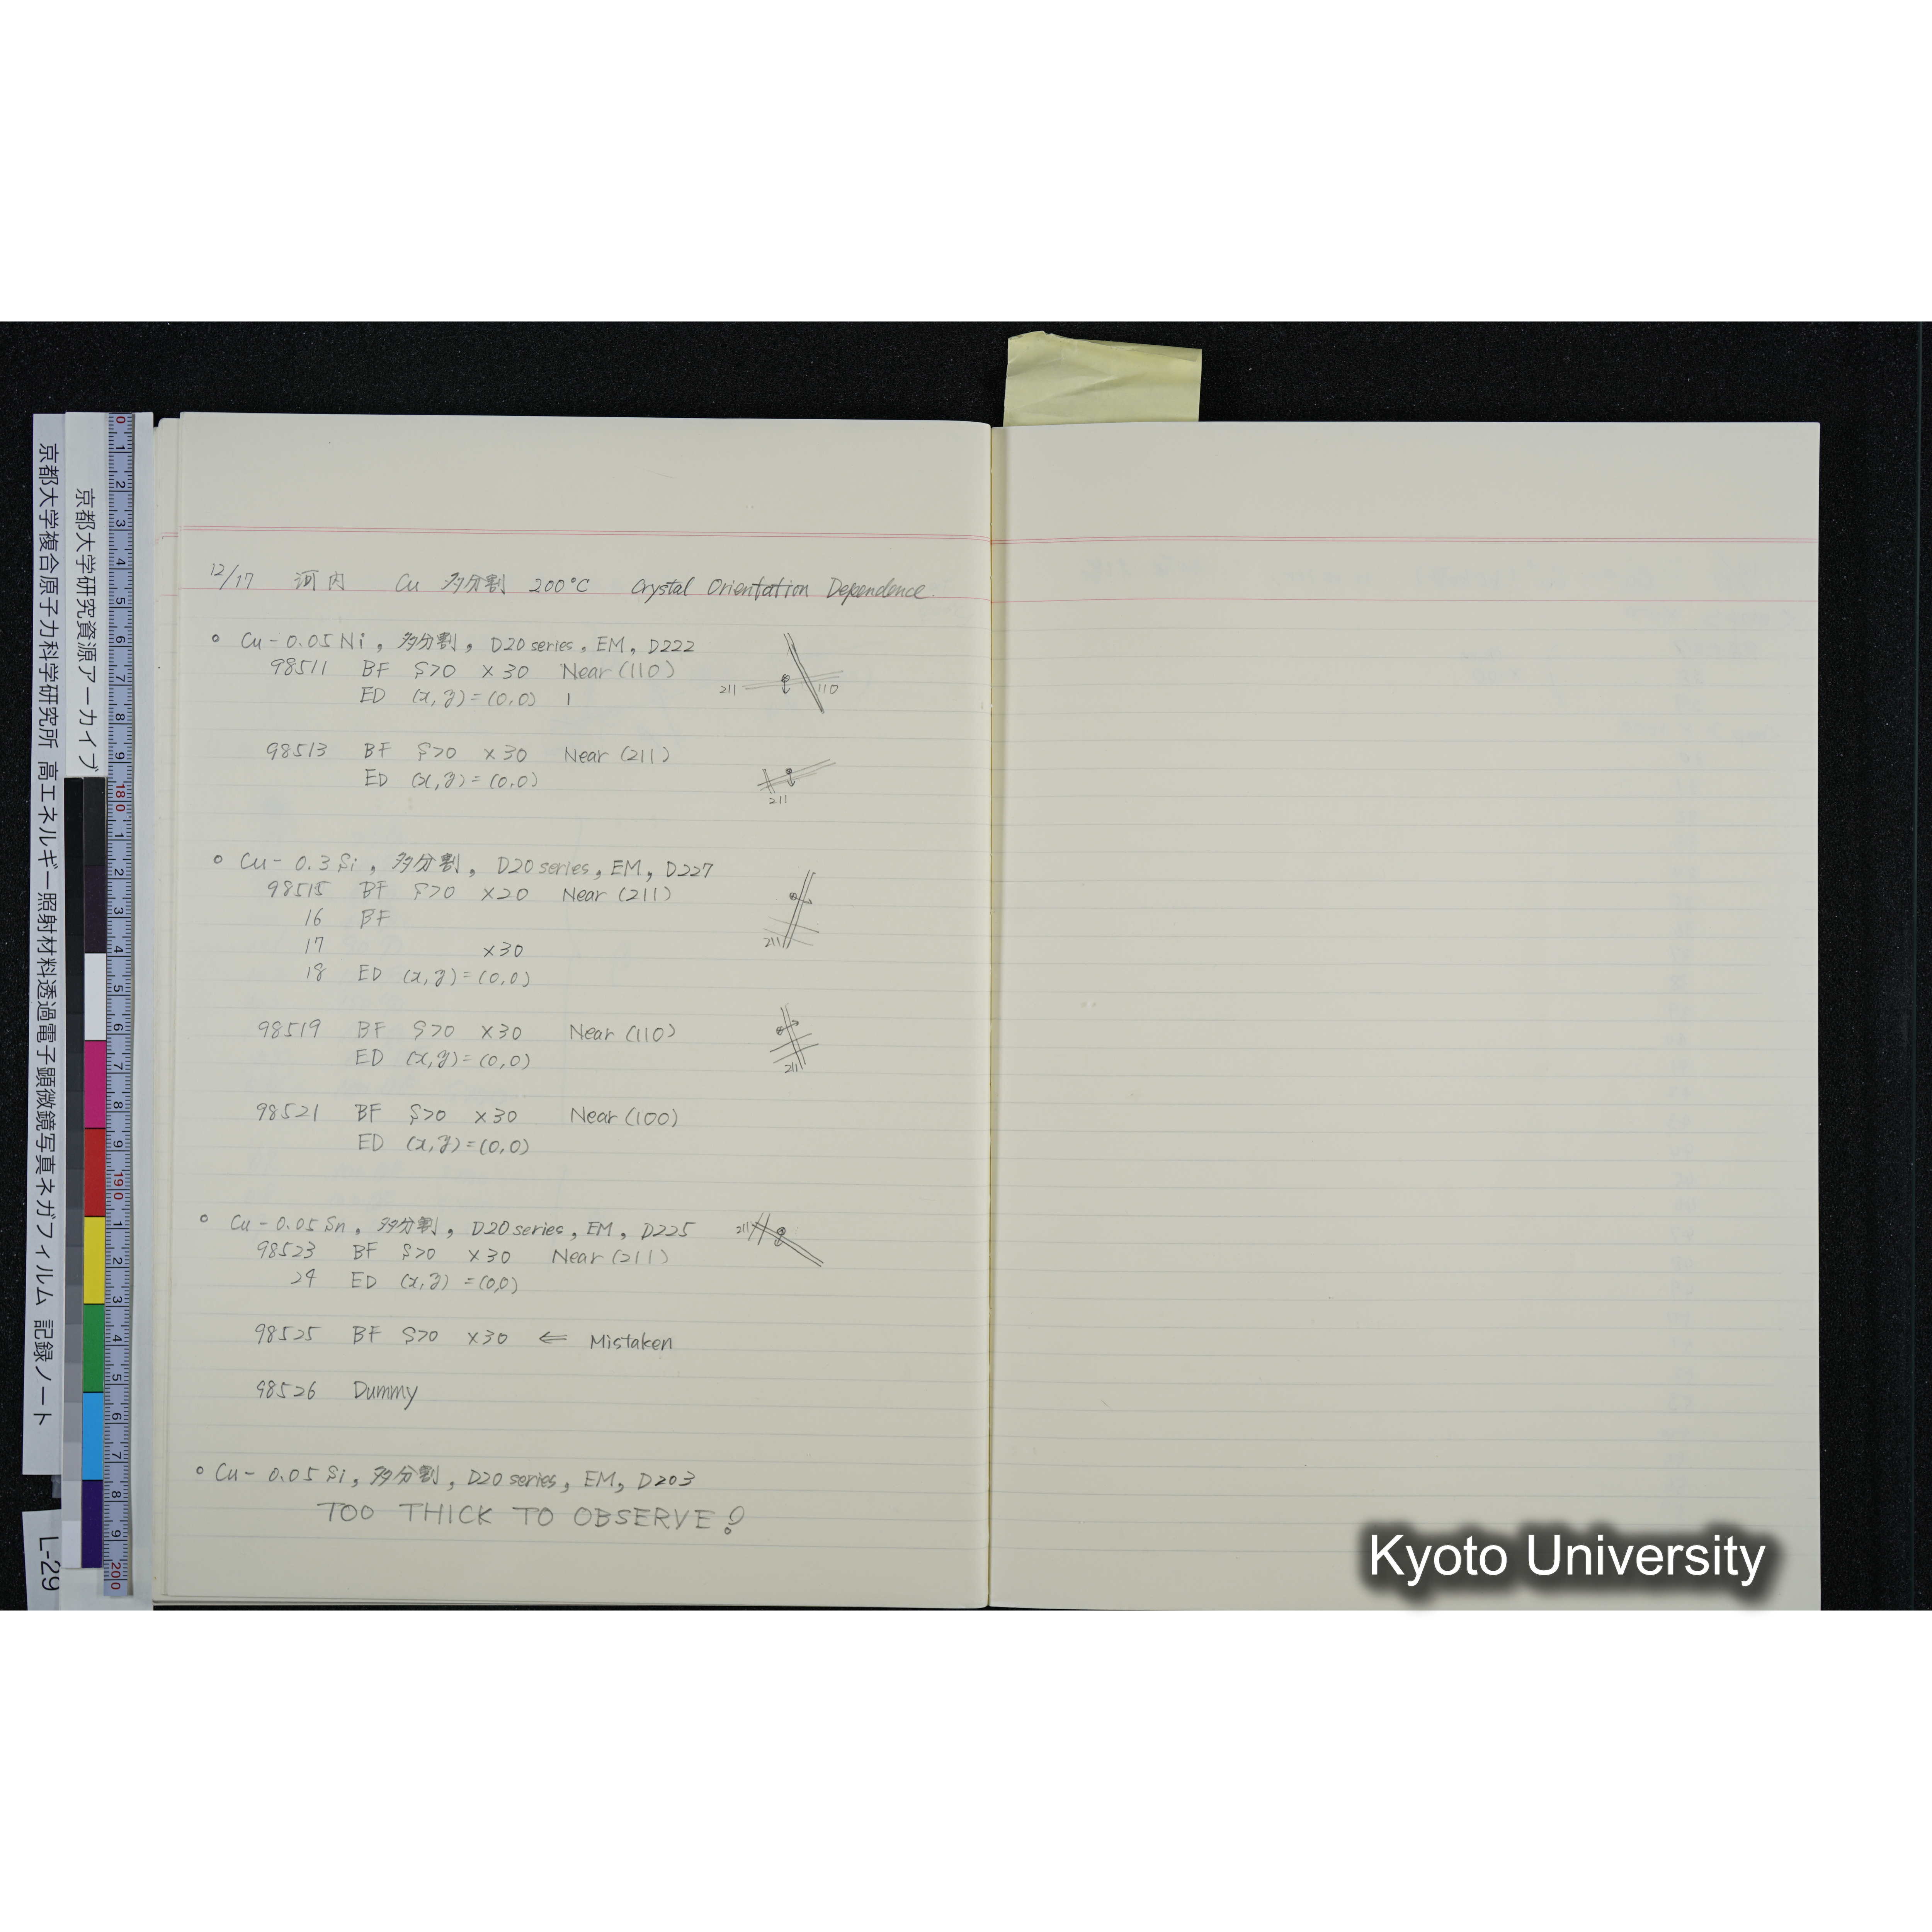 12/17 河内 Cu 多分割 200°C Crystal Orientation Dependence.
○ Cu-0.05Ni, 多分割, D20 series, EM, D222
98511 BF S>0 ×30 Near (110)
ED (x,y)=(0,0) 1
211 110
98513 BF S>0 ×30 Near (211)
ED (x,y)=(0,0)
211
○ Cu-0.3Si, 多分割, D20 series, EM, D227
98515 BF S>0 ×20 Near (211)
16 BF
17 ×30
211
18 ED (x,y)=(0,0)
98519 BF S>0 ×30 Near (110)
ED (x,y)=(0,0)
211
98521 BF S>0 ×30 Near (100)
ED (x,y)=(0,0)
○ Cu-0.05Sn, 多分割, D20 series, EM, D225
211
98523 BF S>0 ×30 Near (211)
24 ED (x,y)=(0,0)
98525 BF S>0 ×30 ⇐ Mistaken
98526 Dummy
○ Cu-0.05Si, 多分割, D20 series, EM, D203
TOO THICK TO OBSERVE!
京都大学研究資源アーカイブ
京都大学複合原子力科学研究所 高エネルギー照射材料透過電子顕微鏡写真ネガフィルム 記録ノート
L-29
0 1 2 3 4 5 6 7 8 9 180 1 2 3 4 5 6 7 8 9 190 1 2 3 4 5 6 7 8 9 200
Kyoto University